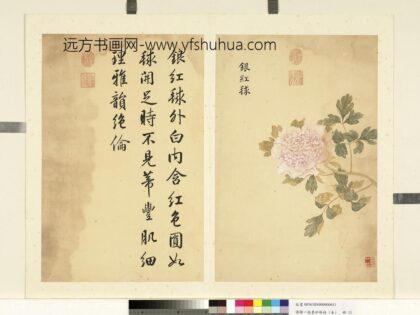 远方书画网-www.yfshuhua.com
銀紅毬外白内含紅色圓如
毬開足時不見蒂豐肌細
理雅韻絶倫
銀紅毬